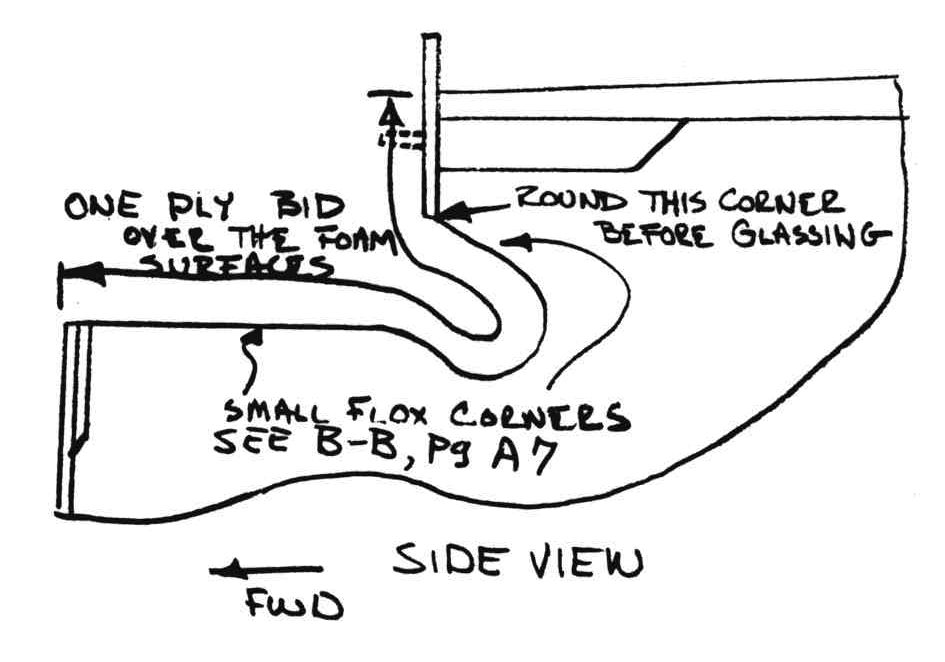 ONE PLY BID
OVER THE FOAM
SURFACES
ROUND THIS CORNER
BEFORE GLASSING
SMALL FLOX CORNERS
SEE B-B, Pg A7
SIDE VIEW
FWD